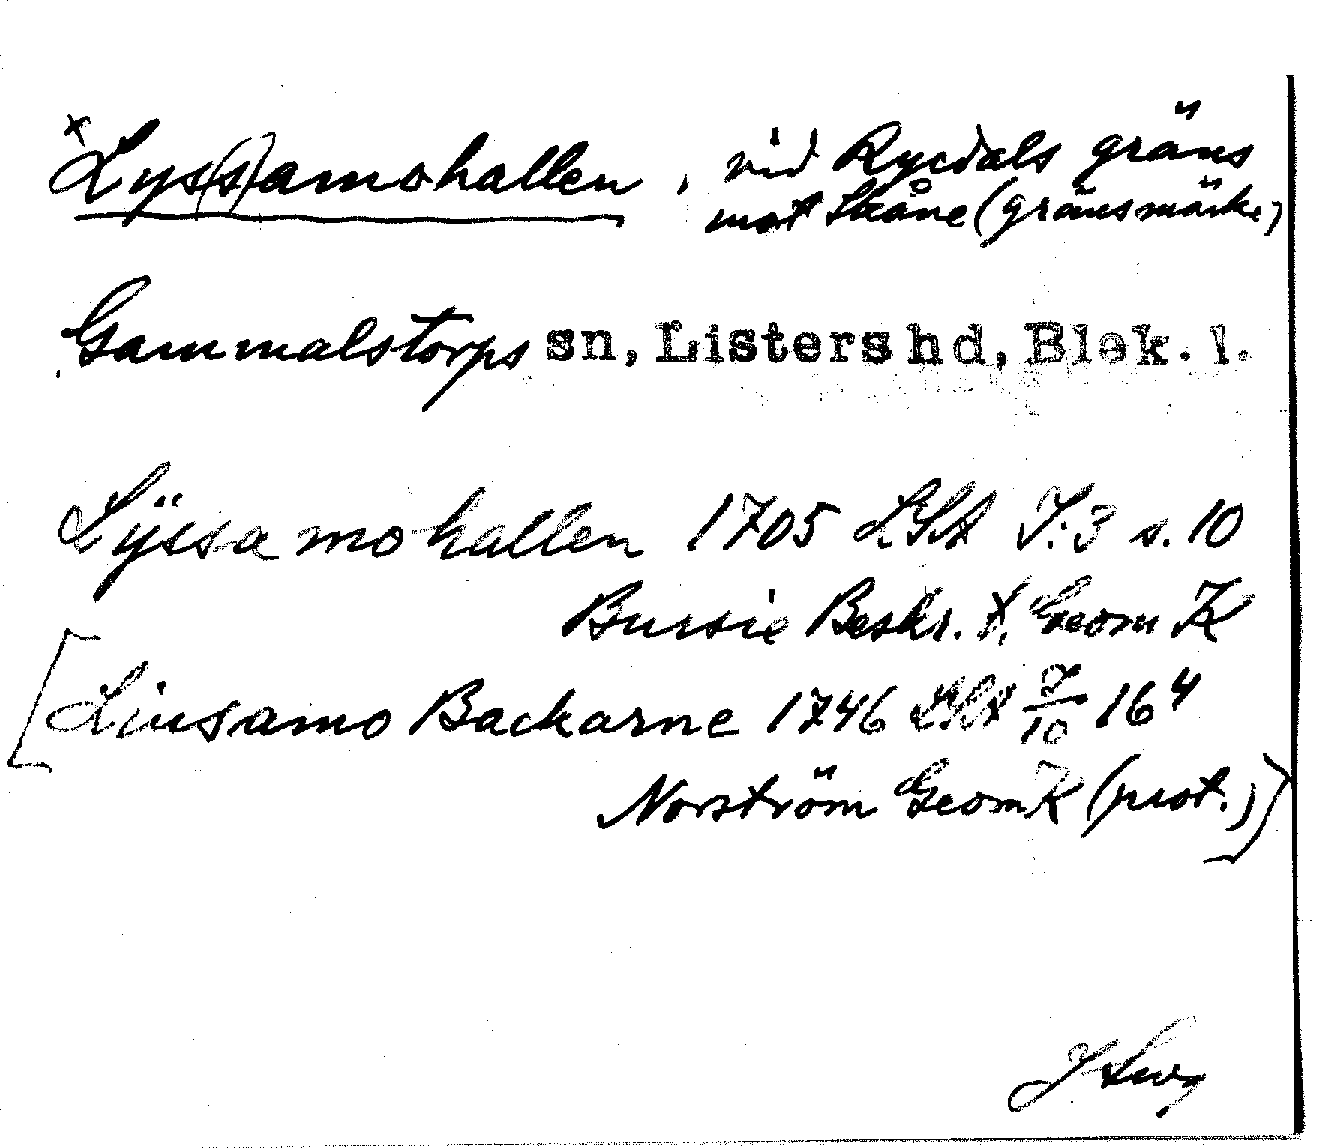 × Lys(s)amohallen, vid Rycdals gräns
mot Skåne (gränsmärke)
Gammalstorps sn, Listers hd, Blek. l.
Lÿssa mo hallen 1705 LSA I:3 s. 10
Bursie Beskr. t. Geom K
[Linsamo Backarne 1746 LSA 7/10 16⁴
Norström Geom K (prot.)]